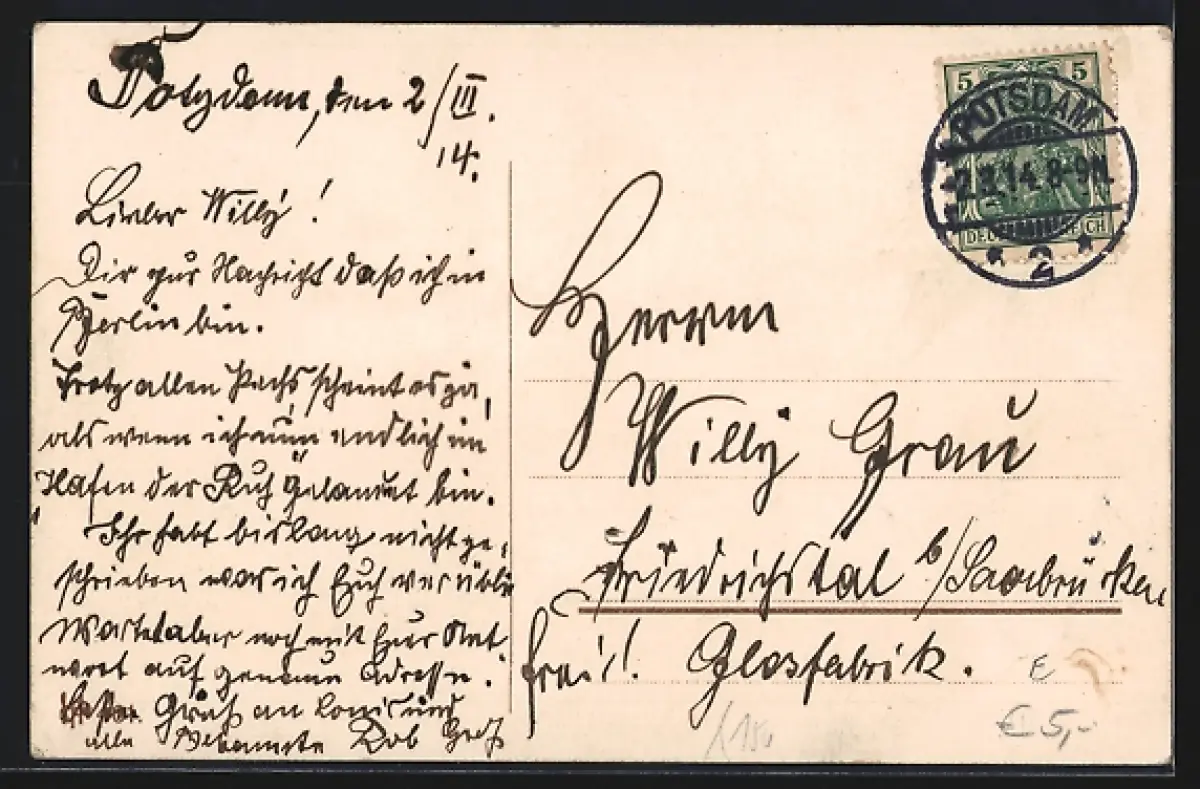 Potzdam, den 2/III.
14.
Lieber Willy!
Dir zur Nachricht daß ich in
Berlin bin.
Trotz allen Pechs scheint es ja,
als wenn ich nun endlich im
Hafen der Ruh gelandet bin.
Ihr habt bislang nicht ge-
schrieben was ich Euch verüble
Wartet aber noch mit Eurer Ant-
wort auf genaue Adresse.
Gruß an Louis und
alle Bekannte Rob
5 5
POTSDAM
-2.3.14.8-9N.
DEUTSCHES REICH
* 2 *
Herrn
Willy Grau
Friedrichstal b/Saarbrücken
frei! Glasfabrik.
E
€ 5,-